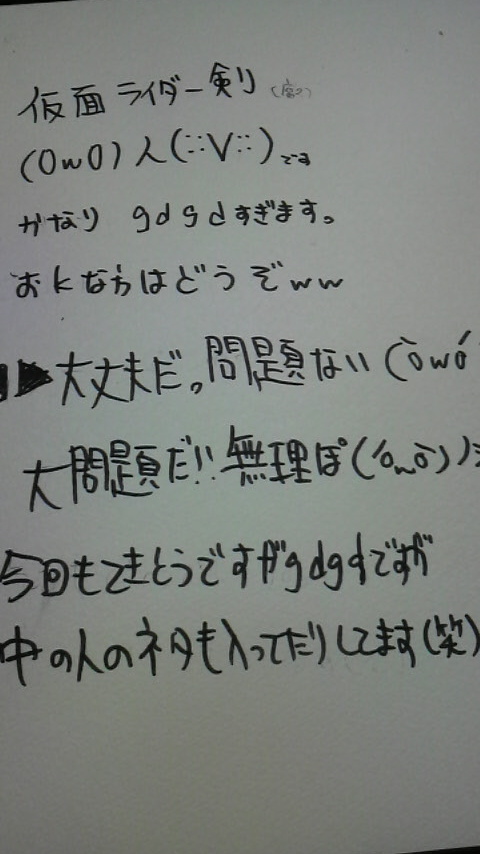 仮面ライダー剣リ
(OwO)人(::V::)です
かなり gdgdすぎます。
おkな方はどうぞww
▶大丈夫だ。問題ない(òwó
大問題だ!!無理ぽ(´ónò))
今回もてきとうですがgdgdですが
中の人のネタも入ってだりしてます(笑)